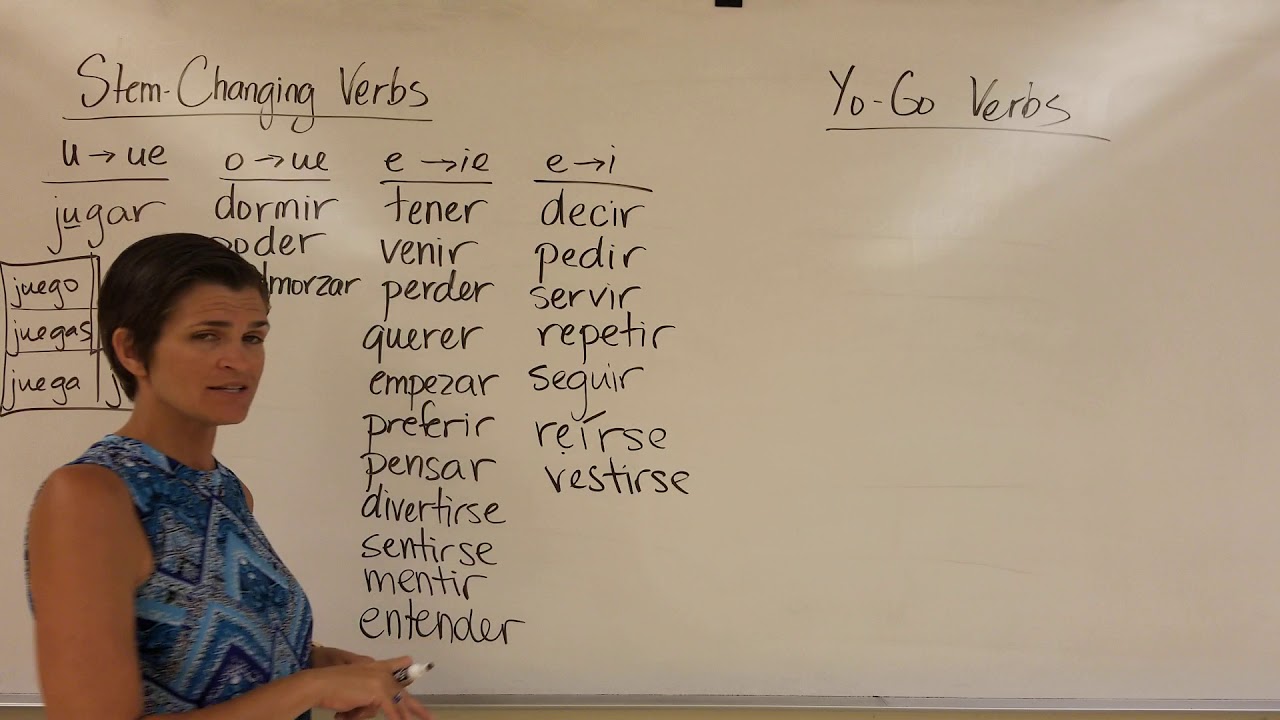 Stem-Changing Verbs
u → ue
jugar
juego
juegas
juega
o → ue
dormir
poder
e → ie
tener
venir
perder
querer
empezar
preferir
pensar
divertirse
sentirse
mentir
entender
e → i
decir
pedir
servir
repetir
seguir
reírse
vestirse
Yo-Go Verbs